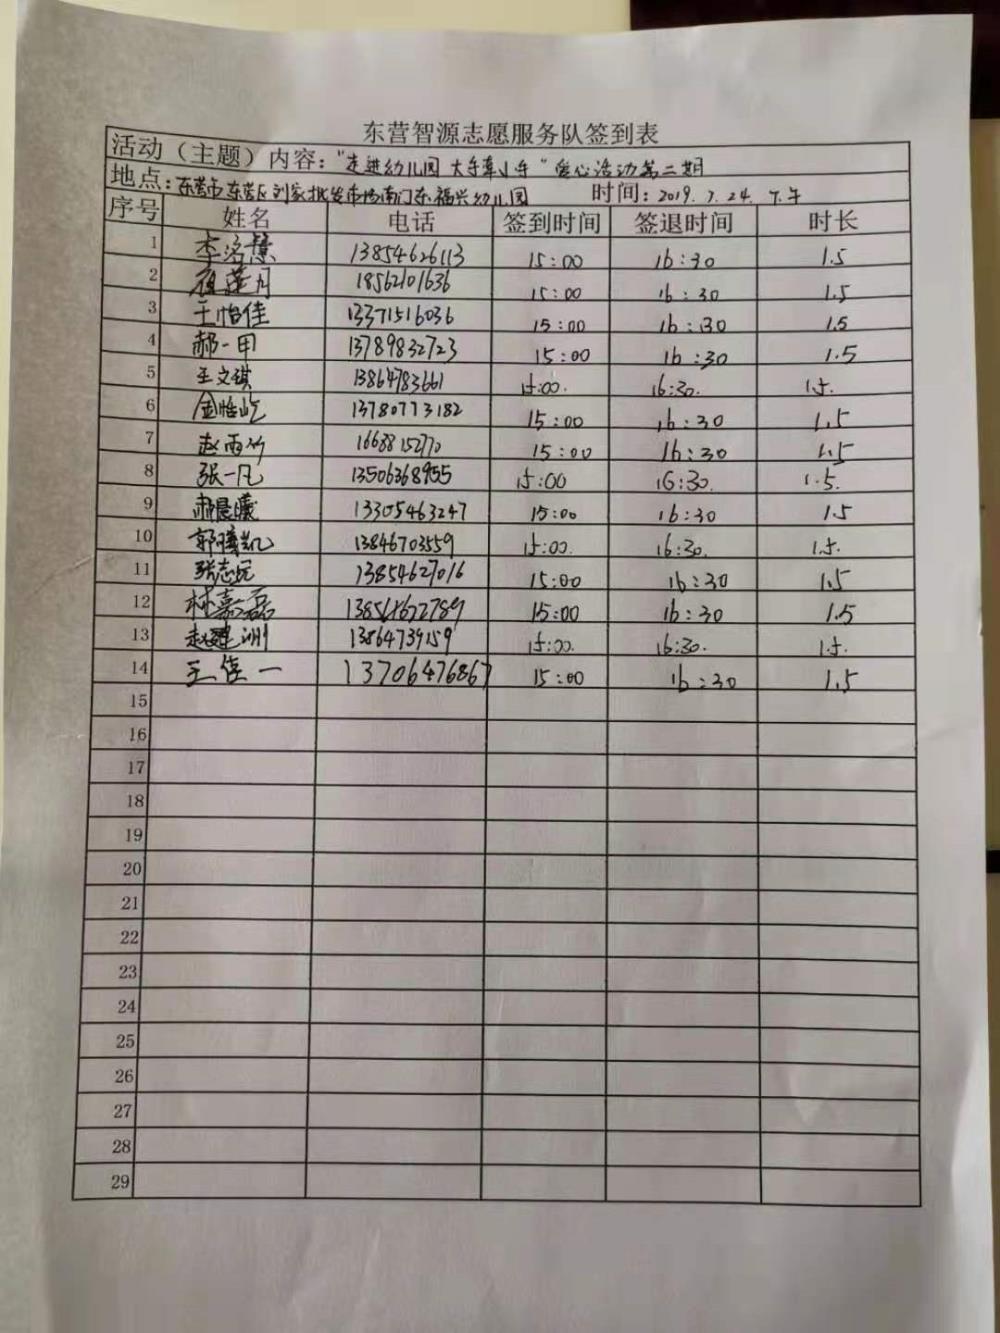 东营智源志愿服务队签到表
活动（主题）内容："走进幼儿园 大手牵小手"爱心活动第二期
地点：东营市东营区刘家批发市场南门东福兴幼儿园 时间：2019.7.24.下午
序号 姓名 电话 签到时间 签退时间 时长
1 李洺慧 13854626113 15:00 16:30 1.5
2 18562101636 15:00 16:30 1.5
3 王怡佳 13371516036 15:00 16:30 1.5
4 郝一甲 13789832723 15:00 16:30 1.5
5 王文琪 13864783661 15:00. 16:30. 1.5.
6 金怡屹 13780773182 15:00 16:30 1.5
7 赵雨竹 16688152770 15:00 16:30 1.5
8 张一凡 13506368955 15:00 16:30. 1.5.
9 郝晨曦 13305463247 15:00 16:30 1.5
10 郭曦凯 13846703559 15:00. 16:30. 1.5.
11 张志远 13854627016 15:00 16:30 1.5
12 林嘉磊 15:00 16:30 1.5
13 赵建洲 13864739159 15:00. 16:30. 1.5.
14 王佳一 13706476867 15:00 16:30 1.5
15
16
17
18
19
20
21
22
23
24
25
26
27
28
29